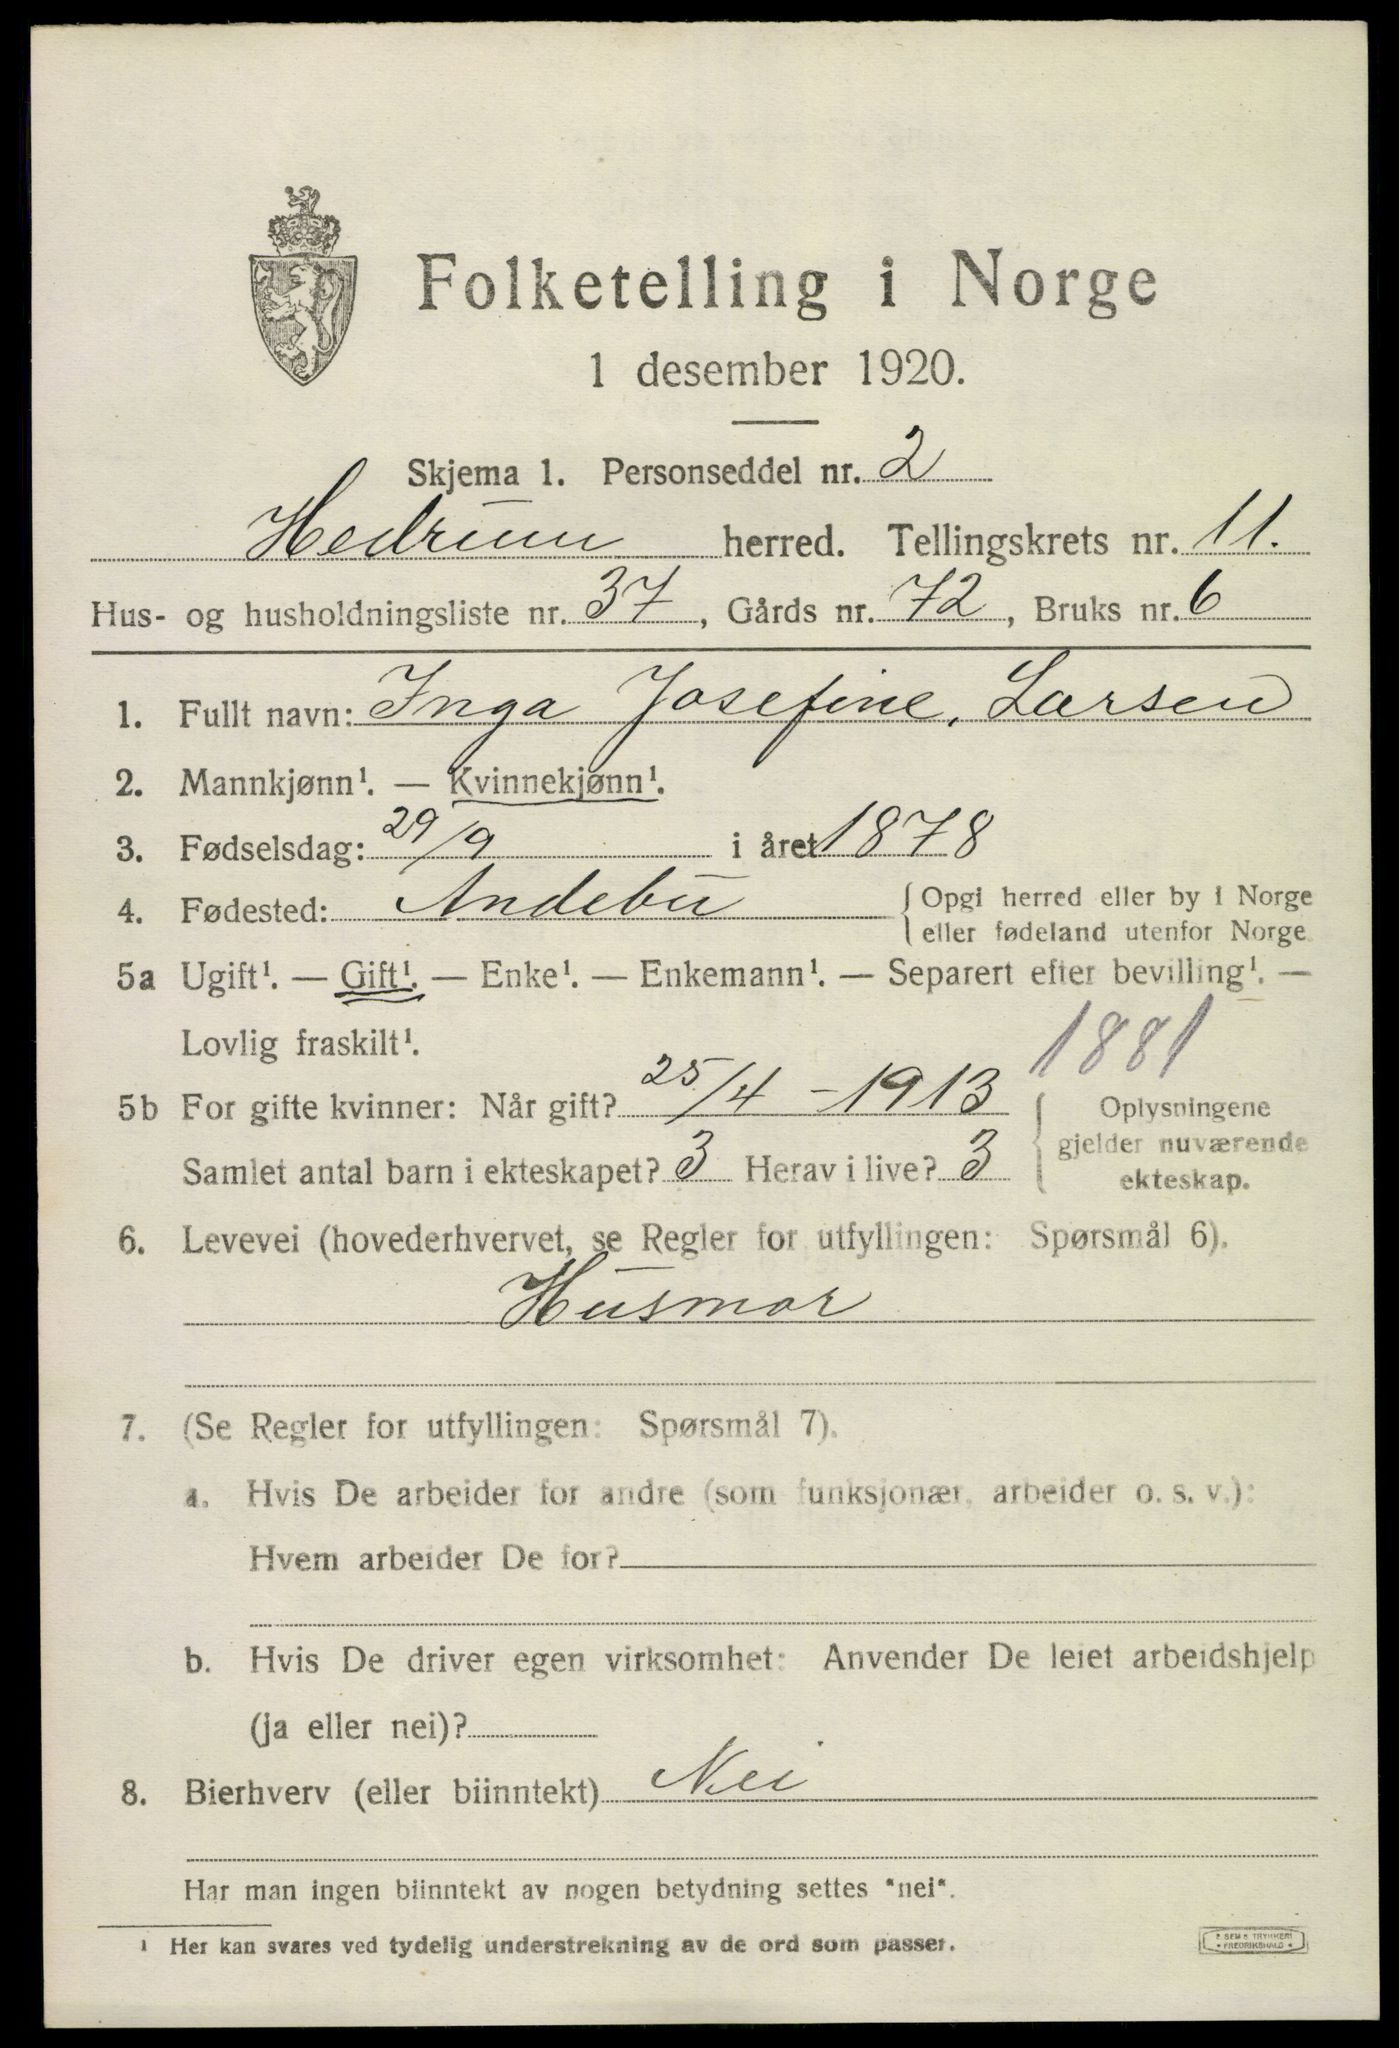 Folketelling i Norge
1 desember 1920.
Skjema 1. Personseddel nr. 2
Hedrum herred. Tellingskrets nr. 11.
Hus- og husholdningsliste nr. 37, Gårds nr. 72, Bruks nr. 6
1. Fullt navn: Inga Josefine, Larsen
2. Mannkjønn¹. — Kvinnekjønn¹.
3. Fødselsdag: 29/9 i året 1878
4. Fødested: Andebu { Opgi herred eller by i Norge
eller fødeland utenfor Norge
5a Ugift¹. — Gift¹. — Enke¹. — Enkemann¹. — Separert efter bevilling¹. —
Lovlig fraskilt¹. 1881
5b For gifte kvinner: Når gift? 25/4 - 1913 { Oplysningene
gjelder nuværende
Samlet antal barn i ekteskapet? 3 Herav i live? 3 ekteskap.
6. Levevei (hovederhvervet, se Regler for utfyllingen: Spørsmål 6).
Husmor
7. (Se Regler for utfyllingen: Spørsmål 7).
a. Hvis De arbeider for andre (som funksjonær, arbeider o. s. v.):
Hvem arbeider De for?
b. Hvis De driver egen virksomhet: Anvender De leiet arbeidshjelp
(ja eller nei)?
8. Bierhverv (eller biinntekt) Nei
Har man ingen biinntekt av nogen betydning settes "nei".
¹ Her kan svares ved tydelig understrekning av de ord som passer.
SEM S TRYKKERI
* FREDRIKSHALD *